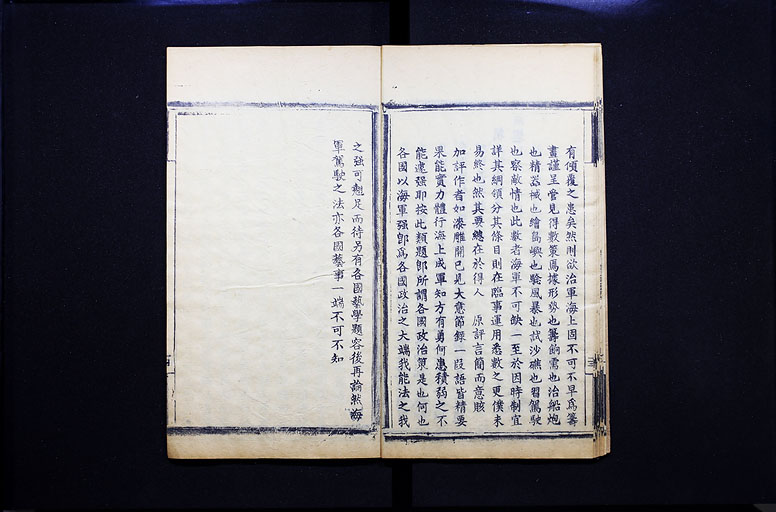 有傾覆之患矣然則欲治軍海上固不可不早爲籌
畫謹呈管見得數策焉據形勢也籌餉需也治船炮
也精器械也繪島嶼也驗風暴也試沙礁也習駕駛
也察敵情也此數者海軍不可缺一至於因時制宜
詳其綱領分其條目則在臨事運用悉數之更僕未
易終也然其要總在於得人 原評言簡而意賅
加評作者如漆雕開已見大意節錄一段語皆精要
果能實力體行海上成軍知方有勇何患積弱之不
能遽强耶按此類題卽所謂各國政治策是也何也
各國以海軍强卽爲各國政治之大端我能法之我
之强可翹足而待另有各國藝學題容後再論然海
軍駕駛之法亦各國藝事一端不可不知